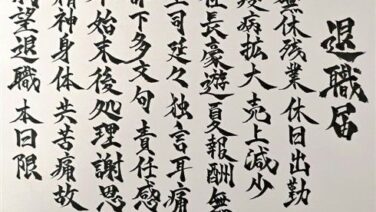 退職届
無休残業 休日出勤
疫病拡大 売上減少
社長豪遊 夏報酬無
上司延々 独言耳痛
部下多文句 責任感
始末後処理 謝思
精神身体 共苦痛故
望退職 本日限